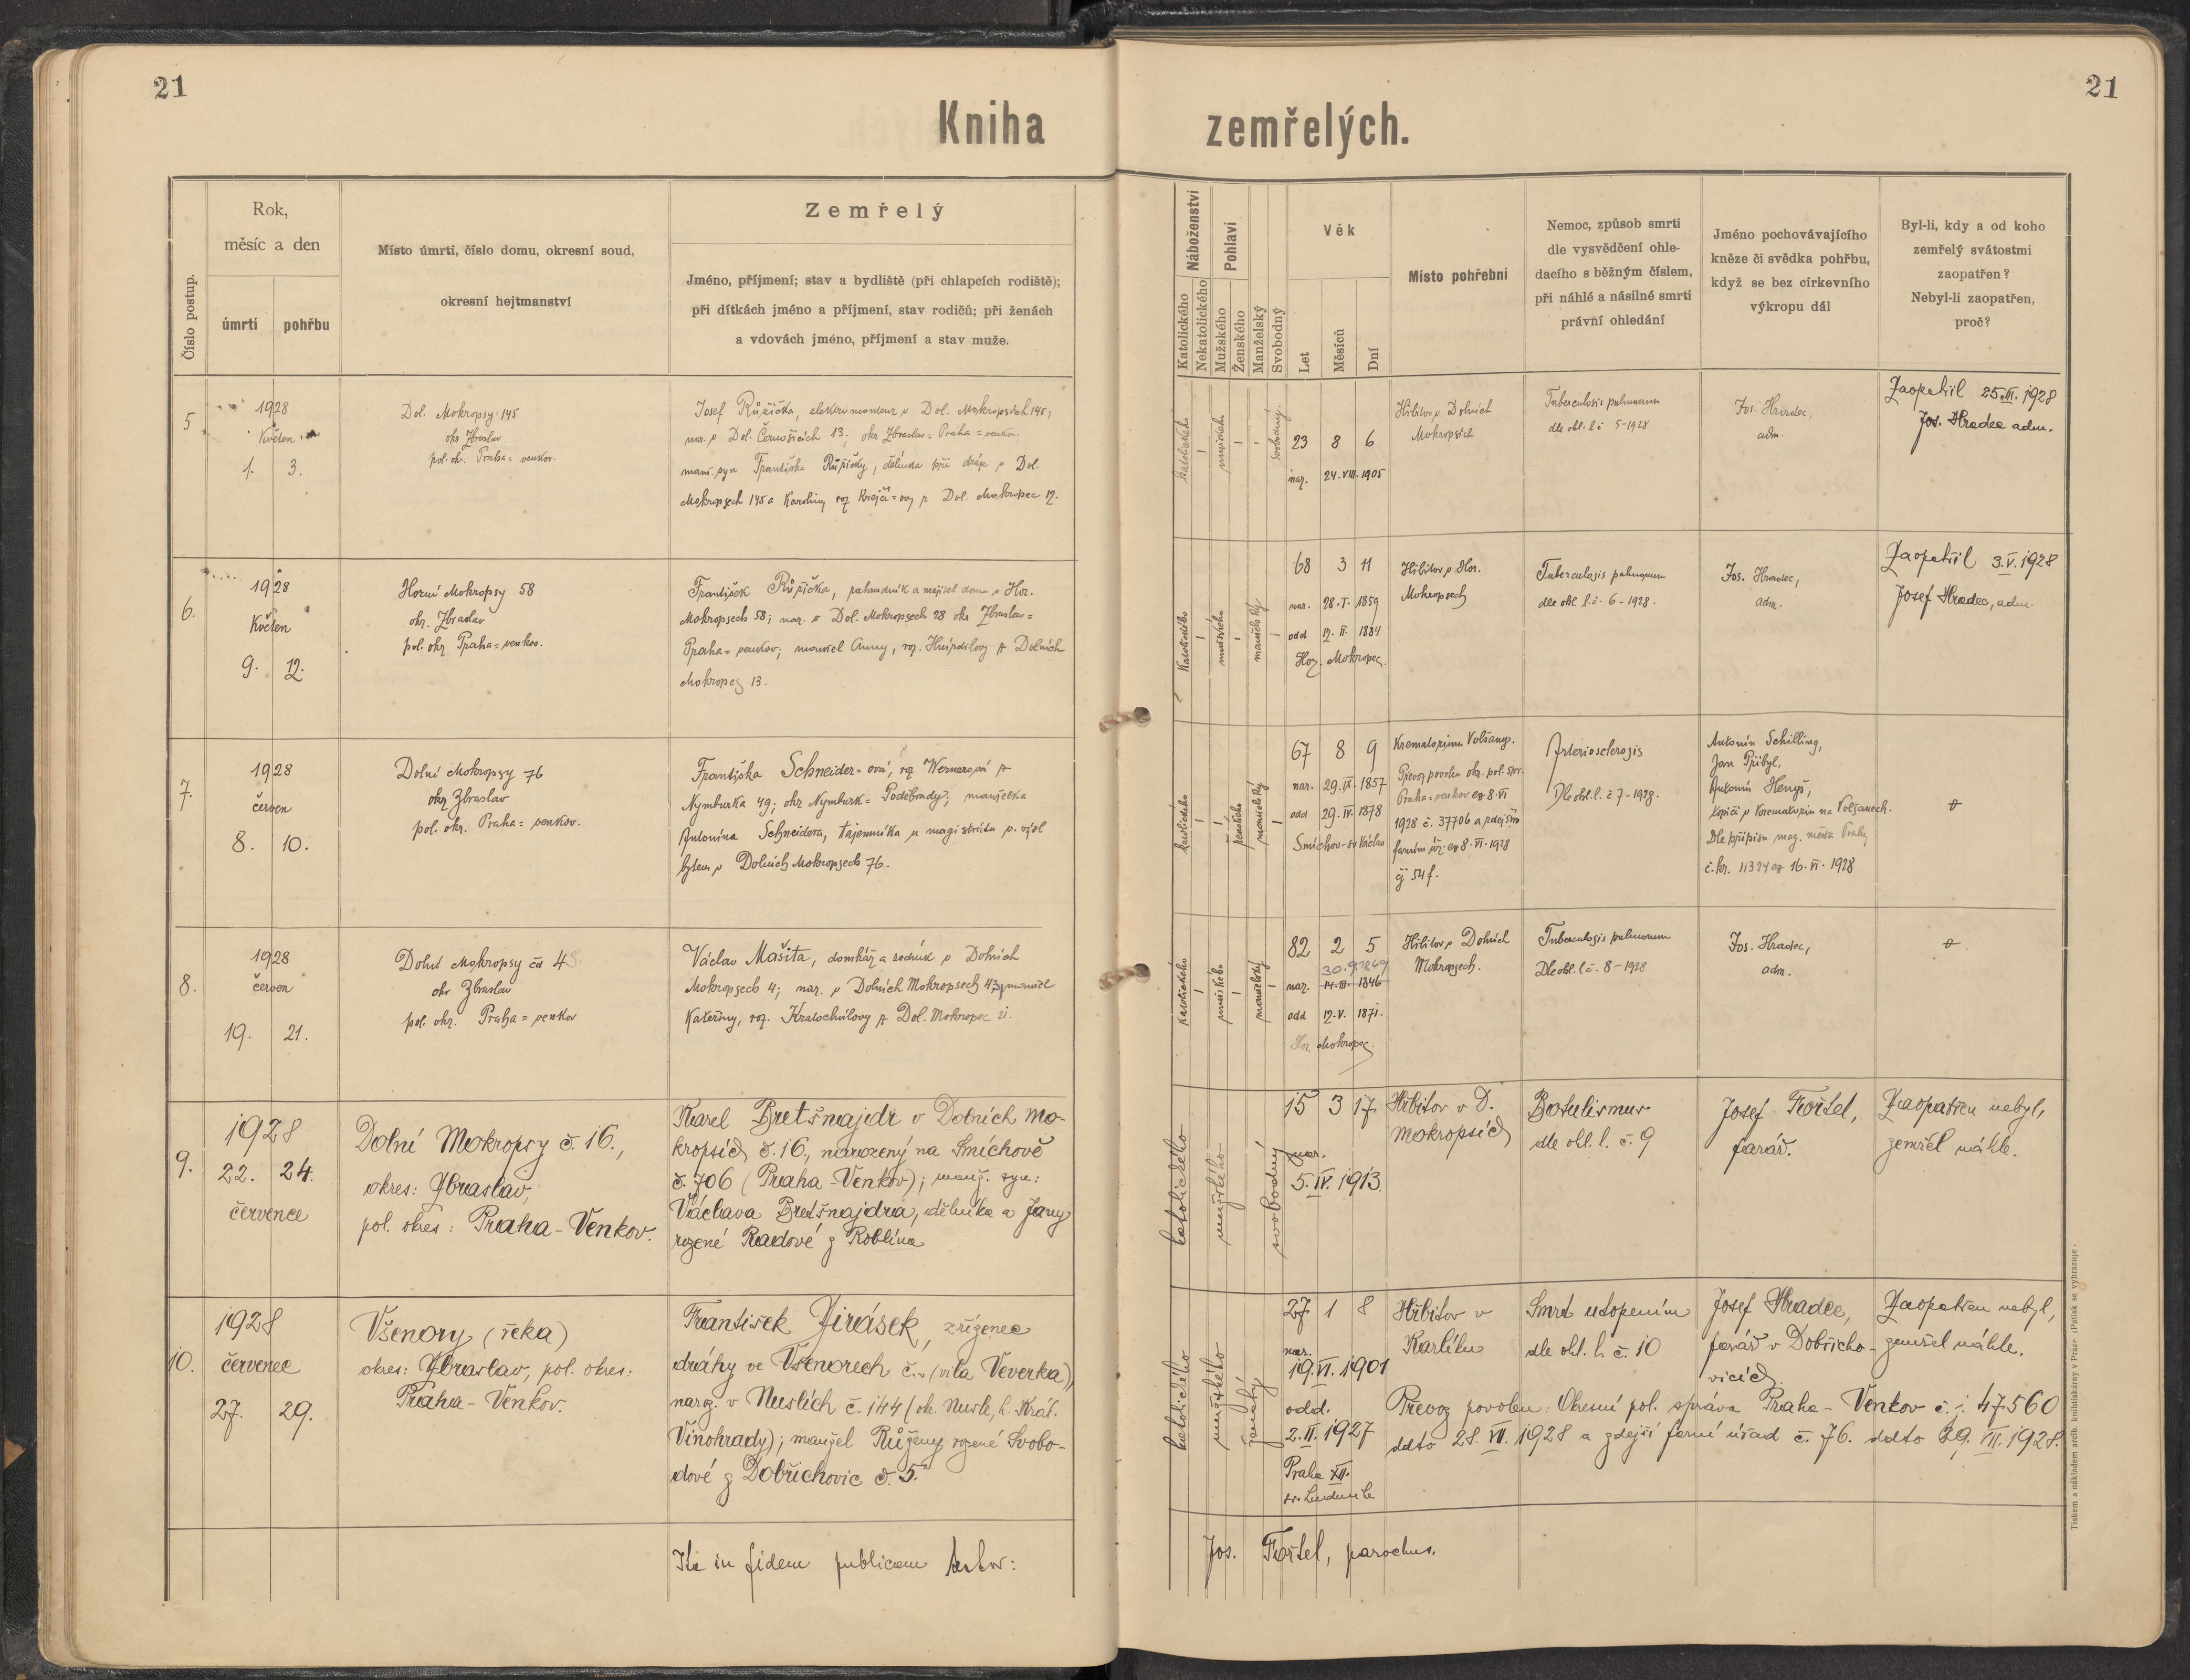 21
Kniha
Číslo postup.
Rok,
měsíc a den
úmrtí
pohřbu
Místo úmrtí, číslo domu, okresní soud,
okresní hejtmanství
Zemřelý
Jméno, příjmení; stav a bydliště (při chlapcích rodiště);
při dítkách jméno a příjmení, stav rodičů; při ženách
a vdovách jméno, příjmení a stav muže.
5
1928
Květen
1. 3.
Dol. Mokropsy 145
okr Zbraslav
pol. okr. Praha = venkov.
Josef Růžička, elektromonteur v Dol. Mokropsích 145,
nar. v Dol. Černošicích 13; okr Zbraslav = Praha = venkov.
manž. syn Františka Růžičky, dělníka při dráze v Dol.
Mokropsech 145 a Karoliny roz Krejčí = ovy z Dol. Mokropec 12.
6.
1928
Květen
9. 12.
Horní Mokropsy 58
okr. Zbraslav
pol. okr Praha = venkov.
František Růžička, zahradník a majitel domu v Hor.
Mokropsech 58; nar. v Dol. Mokropsech 28 okr Zbraslav =
Praha = venkov; manžel Anny, roz. z Dolních
Mokropec 13.
7.
1928
červen
8. 10.
Dolní Mokropsy 76
okr Zbraslav
pol. okr. Praha = venkov.
Františka Schneider = ová, roz Wernerová z
Nymburka 49; okr Nymburk = Poděbrady; manželka
Antonína Schneidera, tajemníka u magistrátu v. výsl
bytem v Dolních Mokropsech 76.
8.
1928
červen
19. 21.
Dolní Mokropsy čd 43
okr Zbraslav
pol. okr. Praha = venkov
Václav Mašita, domkář a sedník v Dolních
Mokropsech 4; nar. v Dolních Mokropsech 43; manžel
Kateřiny, roz. Kratochvílovy z Dol. Mokropec 21.
9.
1928
22. 24.
července
Dolní Mokropsy č. 16.,
okres: Zbraslav,
pol. okres: Praha - Venkov.
Karel Bretšnajdr v Dolních Mo-
kropsích č. 16., narozený na Smíchově
č. 706 (Praha - Venkov); manž. syn:
Václava Bretšnajdra, dělníka a Jany
rozené Radové z Roblína
10.
1928
červenec
27. 29.
Všenory (řeka)
okres: Zbraslav, pol. okres:
Praha - Venkov.
František Jirásek, zřízenec
dráhy ve Všenorech č. (vila Veverka),
narz. v Nuslích č. 144 (ok. Nusle, h. Král.
Vinohrady); manžel Růženy rozené Svobo-
dové z Dobřichovic č. 5.
Ita in fidem publicam testor:
21
zemřelých.
Náboženství
Katolického
Nekatolického
Pohlaví
Mužského
Ženského
Manželský
Svobodný
Věk
Let
Měsíců
Dní
Místo pohřební
Nemoc, způsob smrti
dle vysvědčení ohle-
dacího s běžným číslem,
při náhlé a násilné smrti
právní ohledání
Jméno pochovávajícího
kněze či svědka pohřbu,
když se bez církevního
výkropu dál
Byl-li, kdy a od koho
zemřelý svátostmi
zaopatřen?
Nebyl-li zaopatřen,
proč?
katolického
mužského
svobodný.
23 8 6
nar. 24. VIII. 1905
Hřbitov v Dolních
Mokropsích
Tuberculosis pulmonum
dle ohl. l. č 5-1928
Jos. Hradec,
adm.
Zaopatřil 25. III. 1928
Jos. Hradec adm.
Katolického
mužského
manželský
68 3 11
nar. 28. I. 1859
odd 12. II. 1884
Hor. Mokropec.
Hřbitov v Hor.
Mokropsech
Tuberculosis pulmonum
dle ohl. l. č. 6 - 1928.
Jos. Hradec,
adm.
Zaopatřil 3. V. 1928
Josef Hradec, adm.
katolického
ženského
manželský
67 8 9
nar. 29. IX. 1857
odd 29. IV. 1878
Smíchov - sv Václav
Krematorium Volšany.
Převoz povolen okr. pol. spr.
Praha = venkov ex 8. VI
1928 č. 37706 a zdejším
farním úř. ex 8. VI. 1928
čj 54 f.
Arteriosclerosis
Dle ohl. l. č 7 - 1928.
Antonín Schilling,
Jan Přibyl,
Antonín Henyš,
topiči v Krematoriu na Volšanech.
Dle přípisu mag. města Prahy
č. kr. 11324 ex 16. VI. 1928
katolického
mužského
manželský
82 2 5
30. 9. 1849
nar. 14. III. 1846
odd 12. V. 1871.
Hor. Mokropec.
Hřbitov v Dolních
Mokropsech.
Tuberculosis pulmonum
Dle ohl. l. č. 8 - 1928
Jos. Hradec,
adm.
katolického
mužského
svobodný
15 3 17
nar.
5. IV. 1913.
Hřbitov v D.
Mokropsích
Botulismus
dle ohl. l. č. 9
Josef Fořtel,
farář.
Zaopatřen nebyl,
zemřel náhle.
katolického
mužského
ženatý
27 1 8
nar.
19. VI. 1901
odd.
2. II. 1927
Praha XII.
sv. Ludmila
Hřbitov v
Karlíku
Smrt utopením
dle ohl. l. č. 10
Josef Hradec,
farář v Dobřicho-
vicích.
Zaopatřen nebyl,
zemřel náhle.
Převoz povolen: Okresní pol. správa Praha - Venkov č. j. 47.560
ddto 28. VII. 1928 a zdejší farní úřad č. 76. ddto 29. VII. 1928.
Jos. Fořtel, parochus.
Tiskem a nákladem arcib. knihtiskárny v Praze. (Patisk se vyhrazuje.)